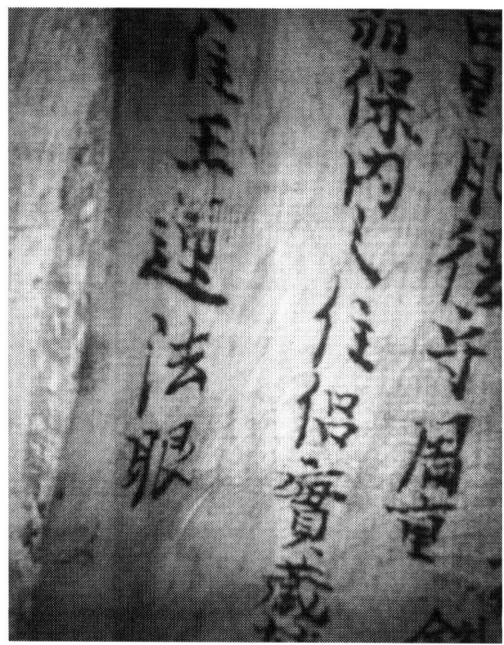 肥後守周重
保内之住侶實蔵
住玉運法眼